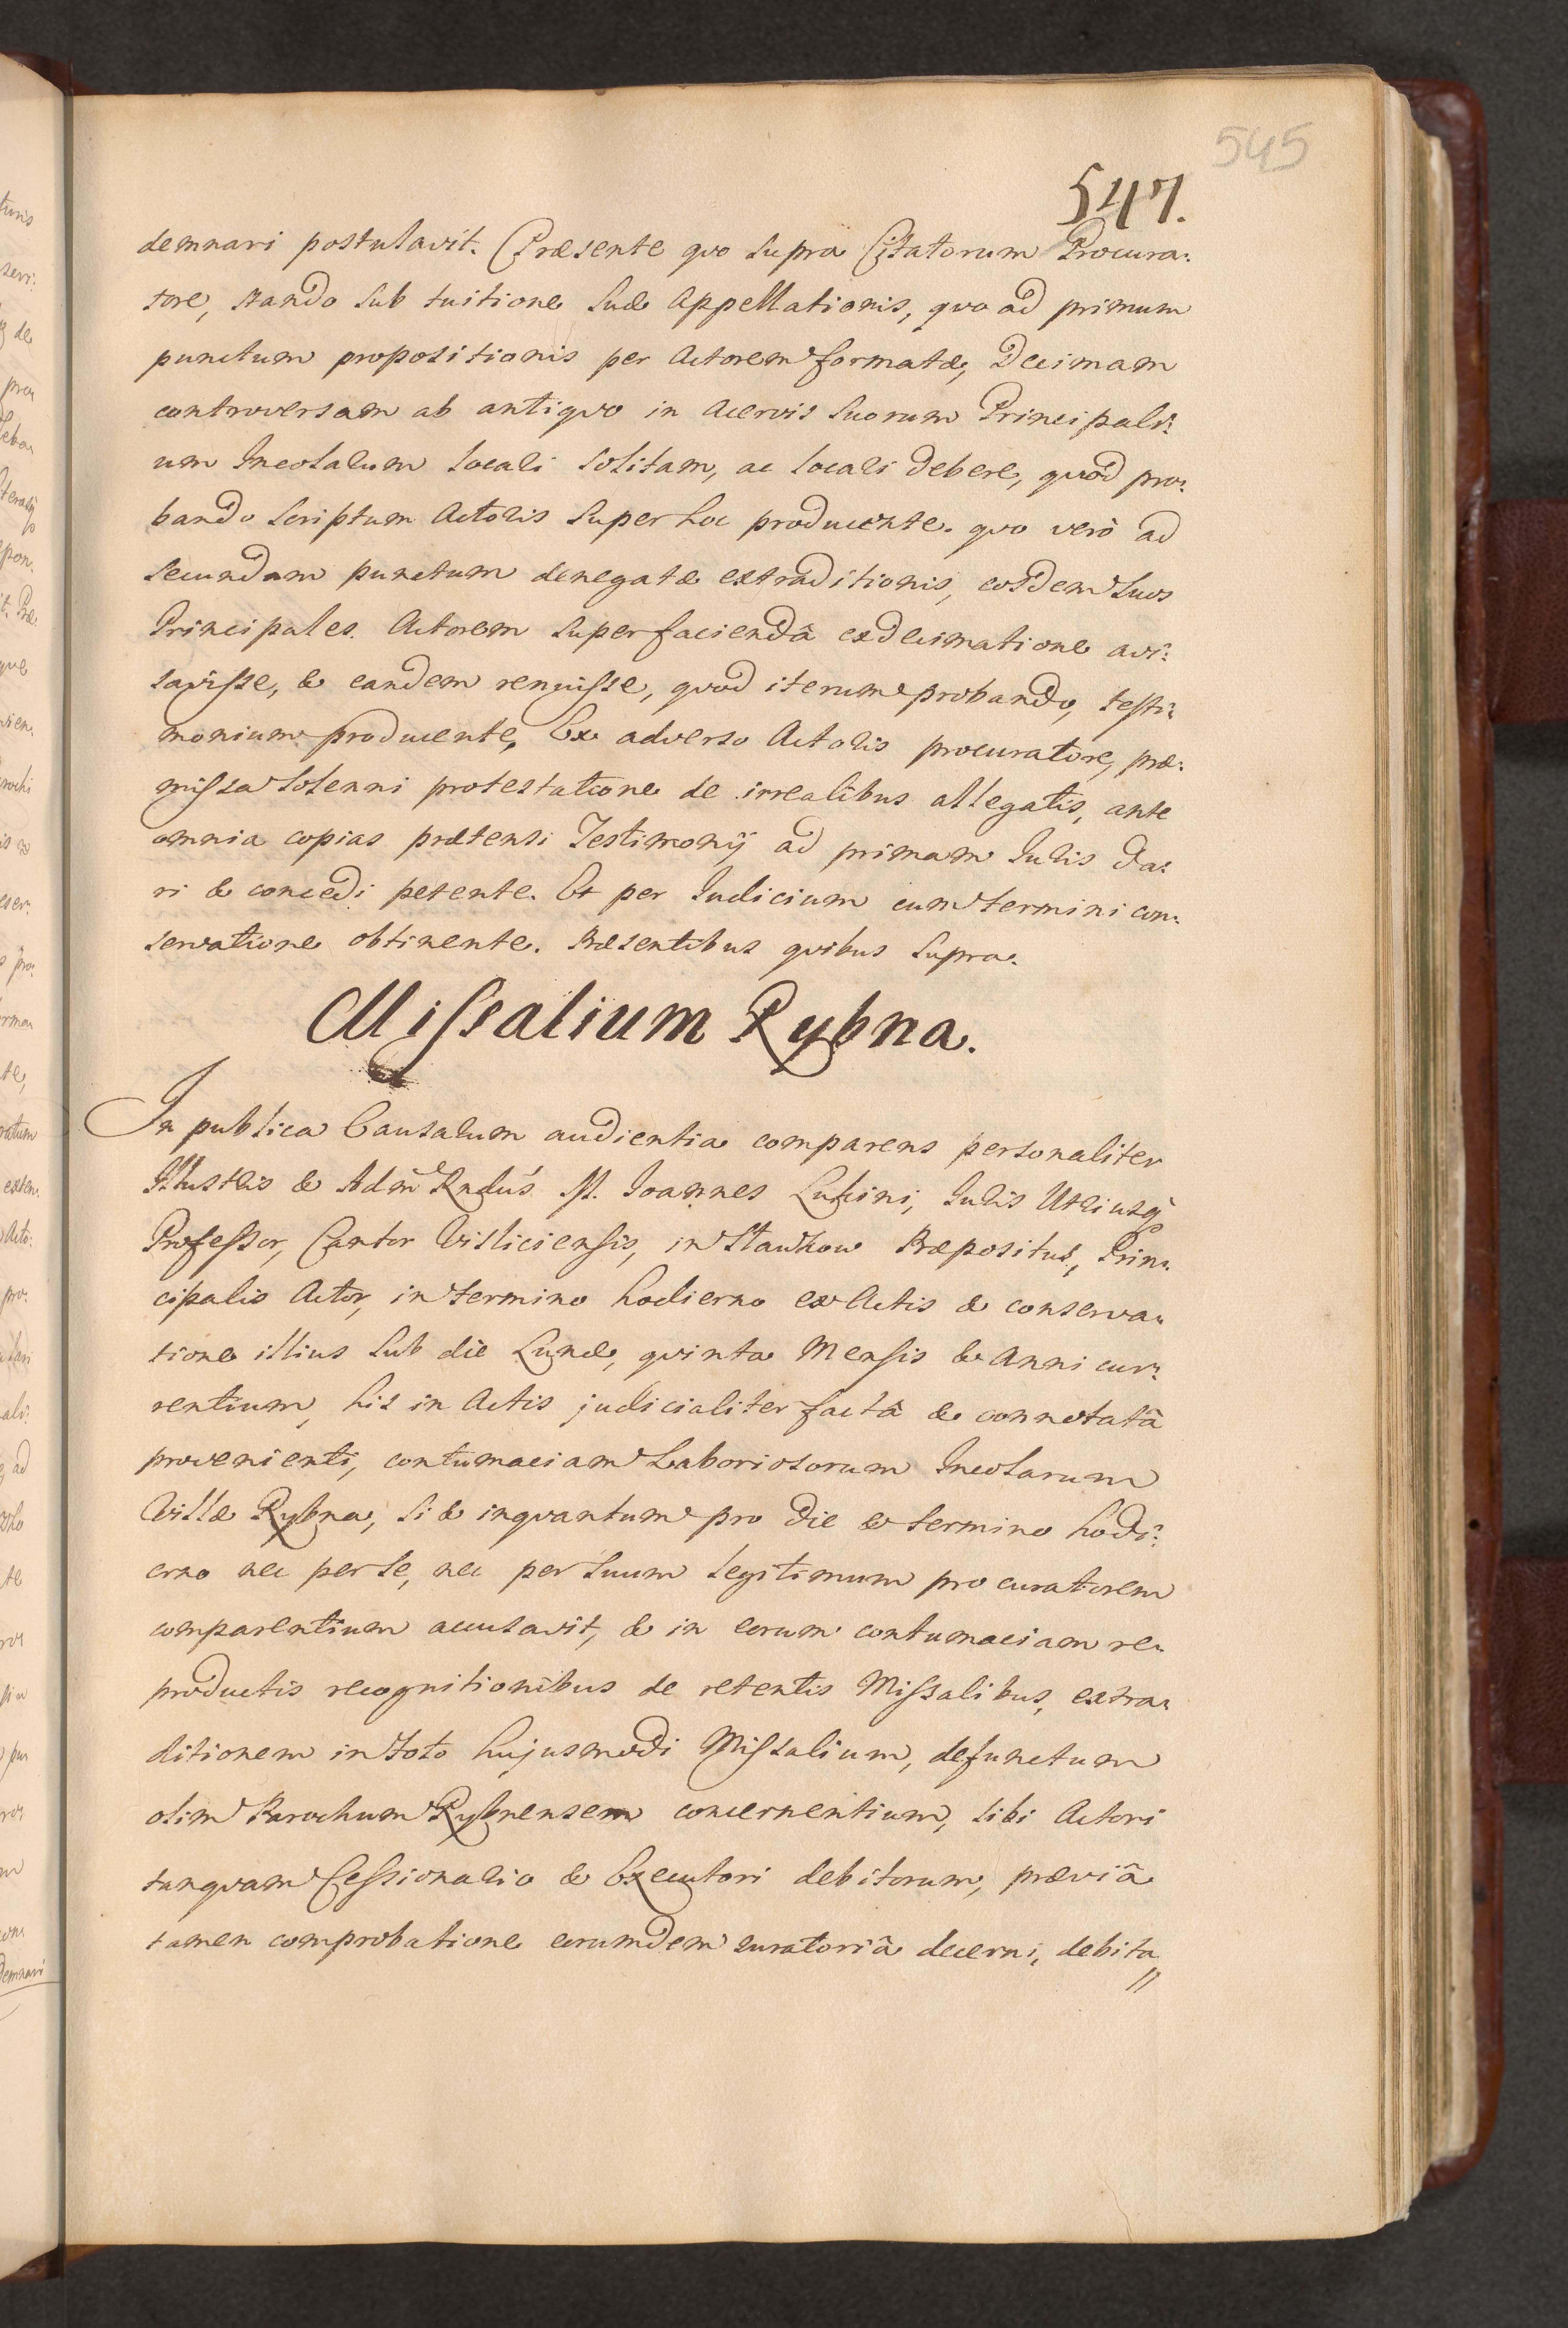 545
547.
demnari postulavit. Præsente quo supra Citatorum Procura:
tore, stando sub tuitione suæ Appellationis, quo ad primum
punctum propositionis per Actorem formatæ, Decimam
controversam ab antiquo in Acervis suorum Principali:
um Incolarum locali solitam, ac locali debere, quod pro:
bando scriptum Actoris super hoc producente. quo verò ad
secundum punctum denegatæ extraditionis, eosdem suos
Principales Actorem super faciendâ exdecimatione avi:
savisse, & eandem renuisse, quod iterum probando, testi:
monium producente, Ex adverso Actoris procuratore, præ:
missa solenni protestatione de irrealibus allegatis, ante
omnia copias prætensi Testimonij ad primam Iuris da:
ri & concedi petente. Et per Iudicium cum termini con:
servatione obtinente. Præsentibus quibus supra.
Missalium Rybna.
In publica Causarum audientia comparens personaliter
Illustris & Adm Rndus D. Ioannes Lukini, Iuris Utriusq
Professor, Cantor Visliciensis, in Sławkow Præpositus, Prin:
cipalis Actor, in termino hodierno ex Actis & conserva:
tione illius sub die Lunæ, quinta Mensis & Anni cur:
rentium, his in Actis judicialiter factâ & connotatâ
provenienti, contumaciam Laboriosorum Incolarum
Villæ Rybna, si & inquantum pro die & termino hodi:
erno nec per se, nec per suum legitimum procuratorem
comparentium accusavit, & in eorum contumaciam re:
productis recognitionibus de retentis Missalibus, extra:
ditionem in toto hujusmodi Missalium, defunctum
olim Parochum Rybnensem concernentium, sibi Actori
tanquam Cessionario & Executori debitorum, præviâ
tamen comprobatione eorumdem juratoriâ decerni, debita